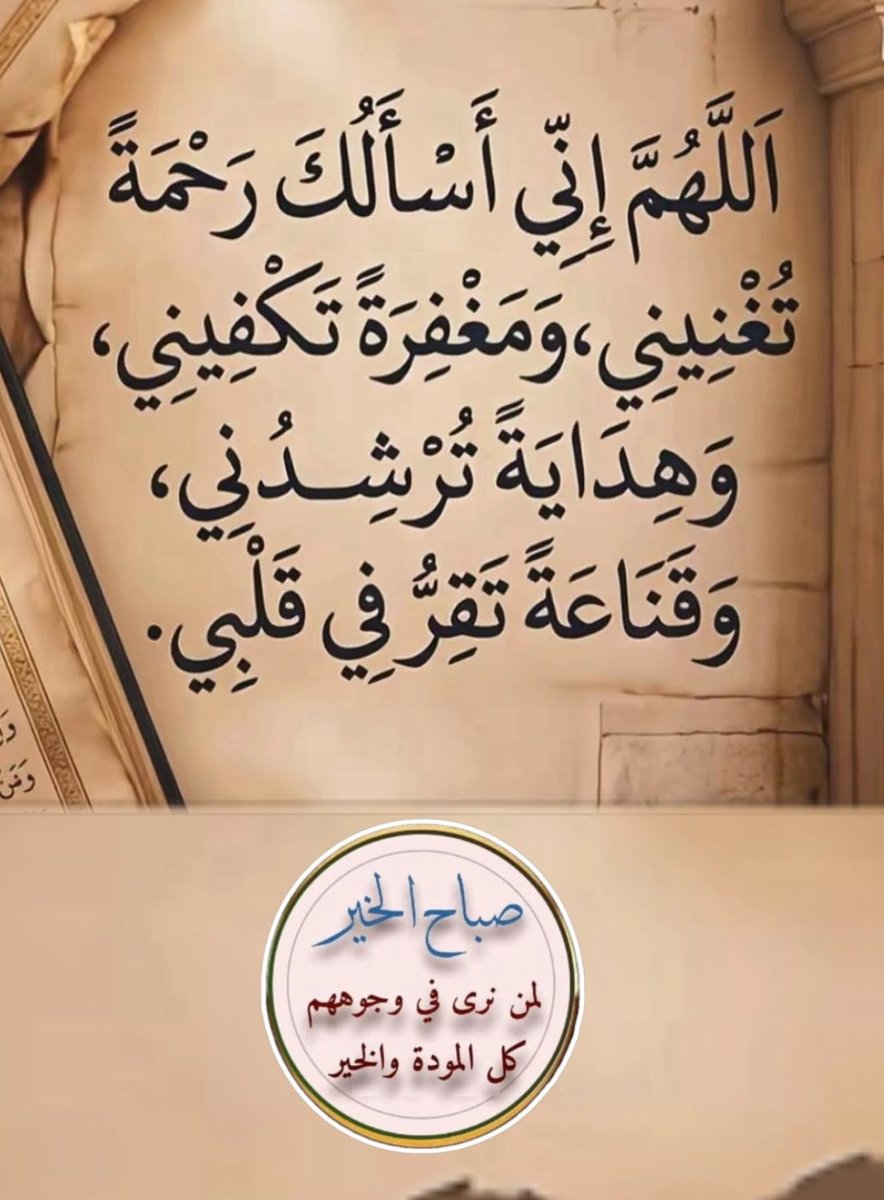 اَللَّهُمَّ إِنِّي أَسْأَلُكَ رَحْمَةً
تُغْنِينِي،وَمَغْفِرَةً تَكْفِينِي،
وَهِدَايَةً تُرْشِدُنِي،
وَقَنَاعَةً تَقِرُّ فِي قَلْبِي.
صباح الخير
لمن نرى في وجوههم
كل المودة والخير